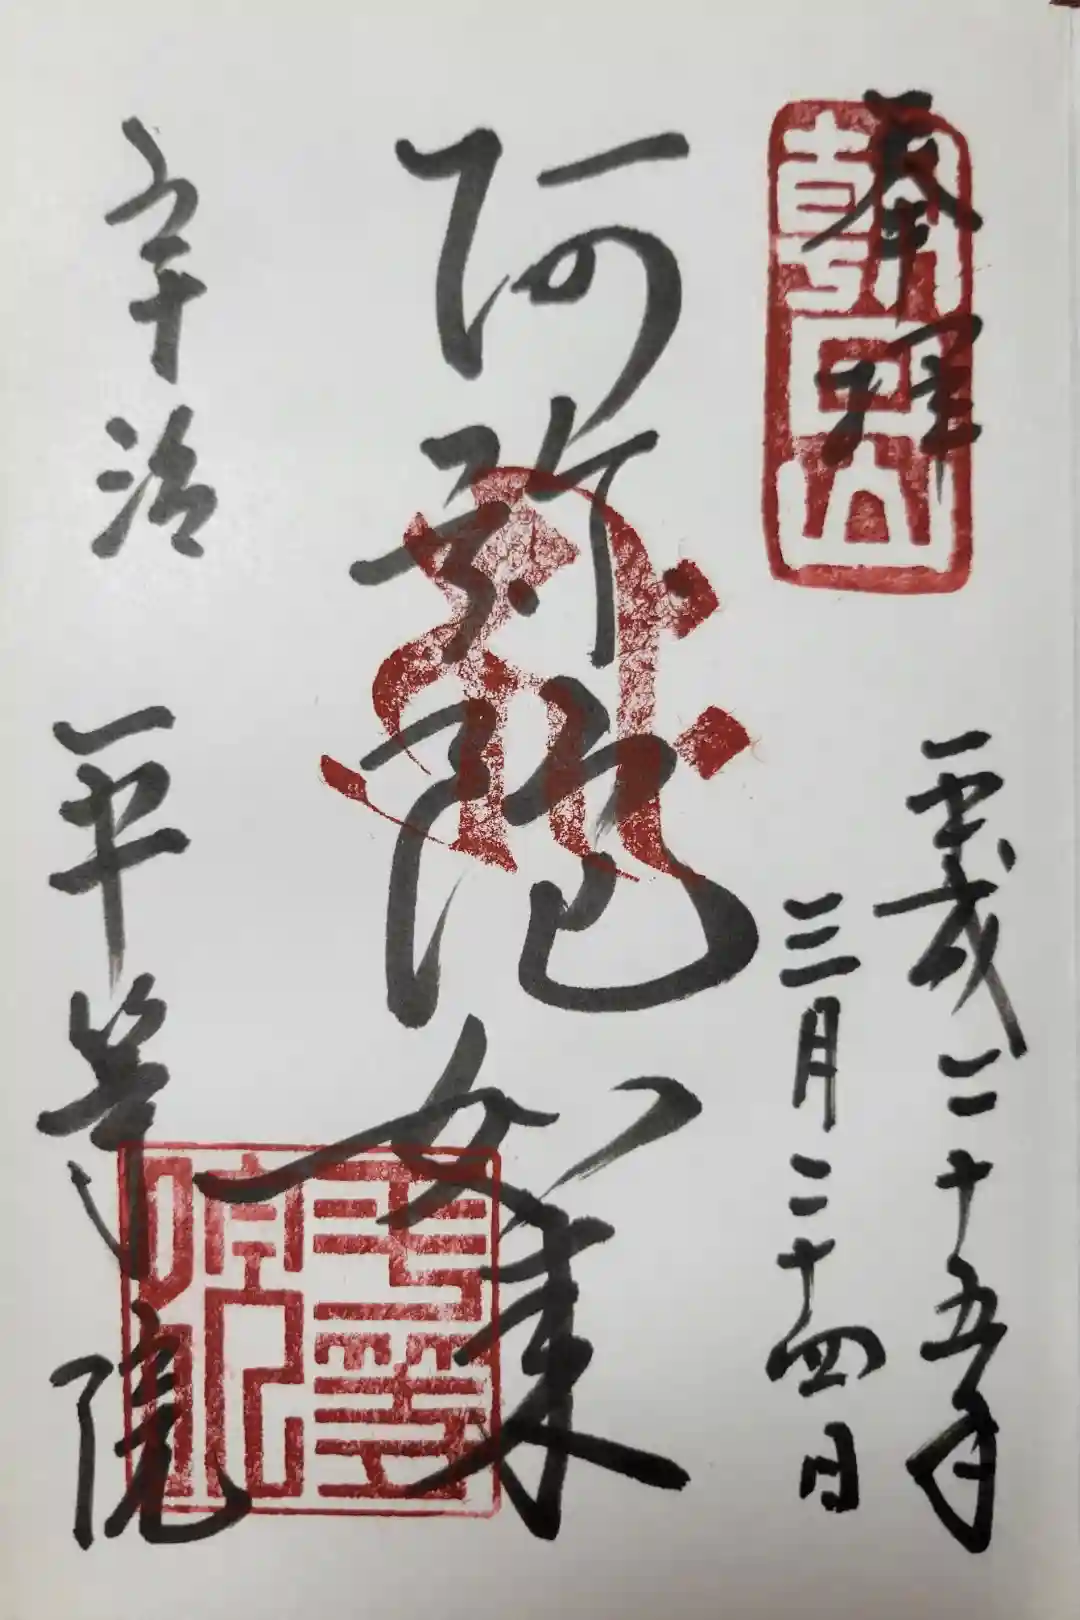 奉拝
朝日山
平成二十五年
三月二十四日
阿弥陀如来
宇治 平等院